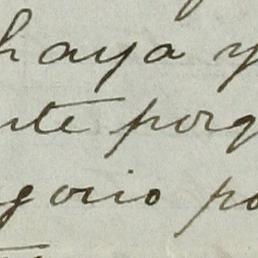 haya y
nte porq
gorio po